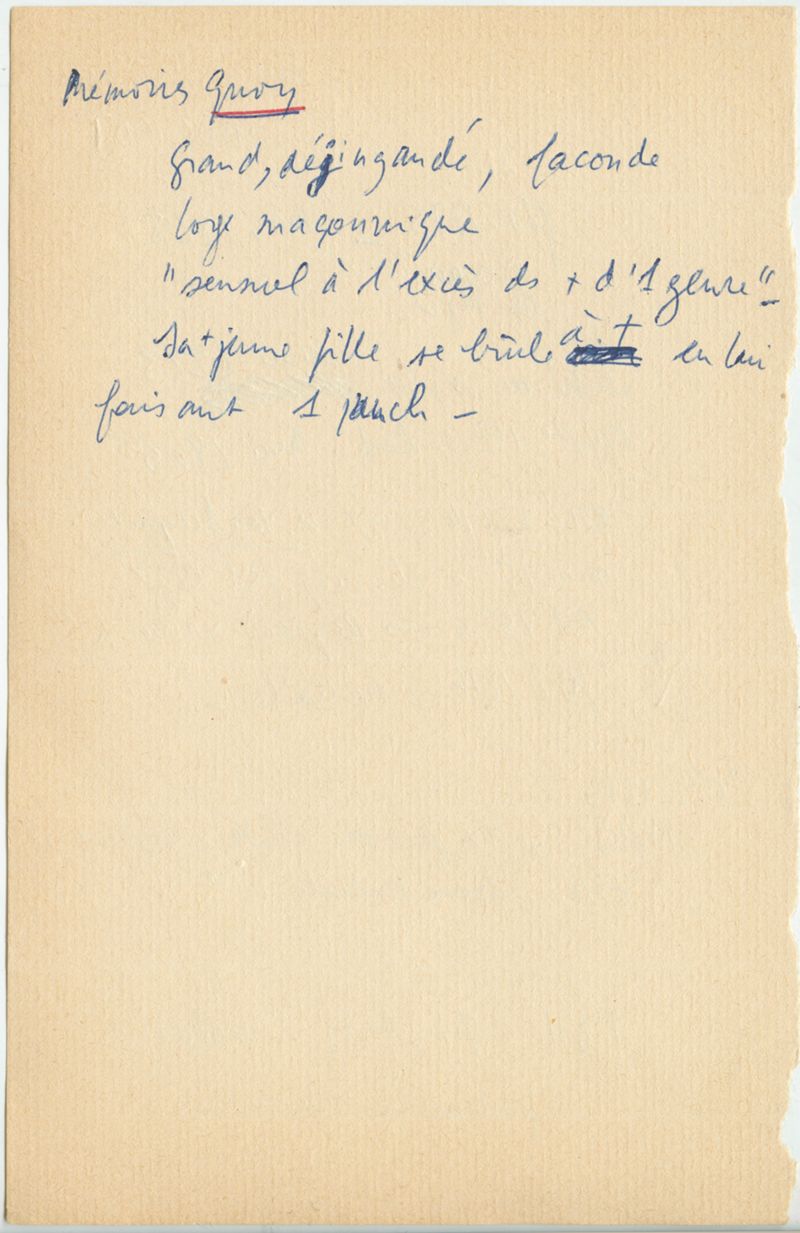 Mémoires Quoy
Grand, dégingandé, faconde
loge maçonnique
"sensuel à l'excès ds + d'1 genre" –
Sa + jeune fille se brûle à † en lui
faisant 1 punch –